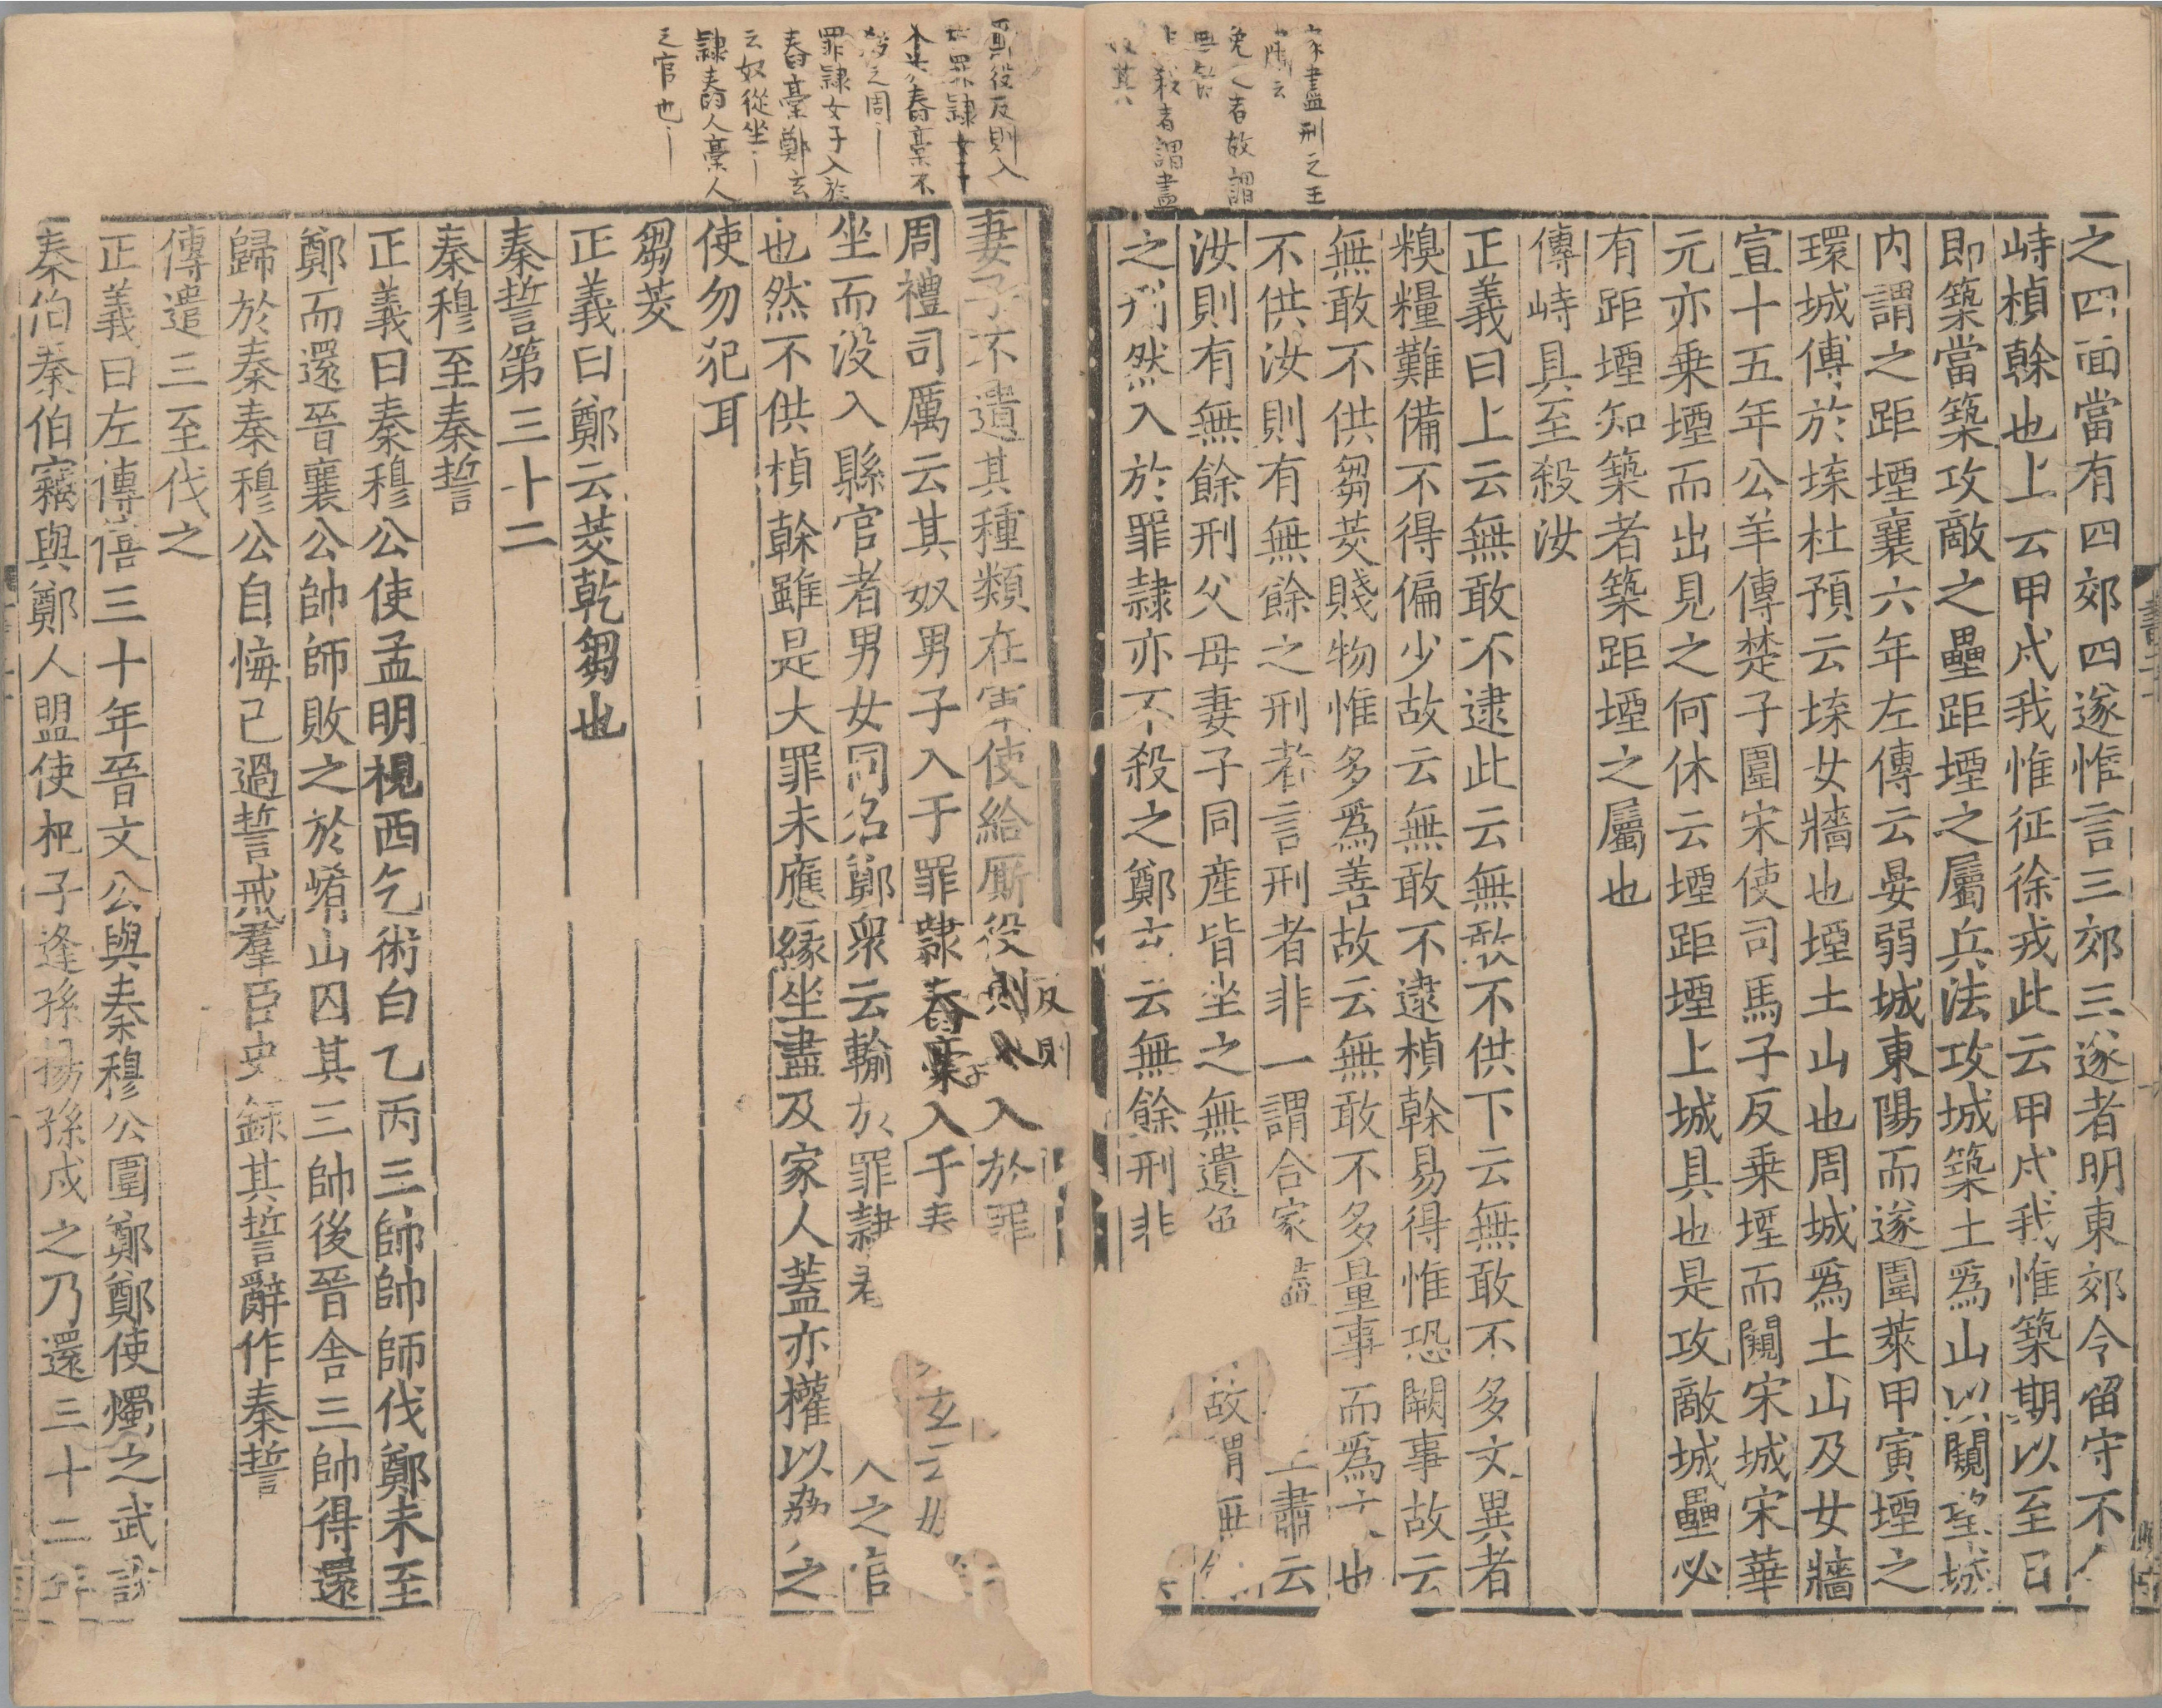 之四面當有四郊四遂惟言三郊三遂者明東郊令留守不
峙楨榦也上云甲戌我惟征徐戎此云甲戌我惟築期以至日
即築當築攻敵之壘距堙之屬兵法攻城築土爲山以闚望城
内謂之距堙襄六年左傳云晏弱城東陽而遂圍萊甲寅堙之
環城傅於堞杜預云堞女牆也堙土山也周城爲土山及女牆
宣十五年公羊傳楚子圍宋使司馬子反乗堙而闚宋城宋華
元亦乗堙而出見之何休云堙距堙上城具也是攻敵城壘必
有距堙知築者築距堙之屬也
傳峙具至殺汝
正義曰上云無敢不逮此云無敢不供下云無敢不多文異者
糗糧難備不得偏少故云無敢不逮楨榦易得惟恐闕事故云
無敢不供芻茭賤物惟多爲善故云無敢不多量事而爲文也
不供汝則有無餘之刑者言刑者非一謂合家盡王肅云
汝則有無餘刑父母妻子同産皆坐之無遺故謂無
之刑然入於罪隷亦不殺之鄭玄云無餘刑非
家盡刑之王
肅云
免之者故謂
無
非殺者謂盡
奴其
妻子不遺其種類在軍使給厮役則入於罪
反則
周禮司厲云其奴男子入于罪隷舂槀入于舂玄云
坐而没入縣官者男女同名鄭衆云輸於罪隷人之官
也然不供楨榦雖是大罪未應縁坐盡及家人蓋亦權以脅之
使勿犯耳
芻茭
正義曰鄭云茭乾芻也
秦誓第三十二
秦穆至秦誓
正義曰秦穆公使孟明視西乞術白乙丙三帥帥師伐鄭未至
鄭而還晉襄公帥師敗之於崤山囚其三帥後晉舍三帥得還
歸於秦秦穆公自悔已過誓戒羣臣史錄其誓辭作秦誓
傳遣三至伐之
正義曰左傳僖三十年晉文公與秦穆公圍鄭鄭使燭之武說
秦伯秦伯竊與鄭人盟使杞子逢孫揚孫戍之乃還三十二年
厮役反則入
於罪隷女子
入舂槀不
殺之周
罪隷女子入於
舂槀鄭玄
云奴從坐
隷舂人槀人
之官也